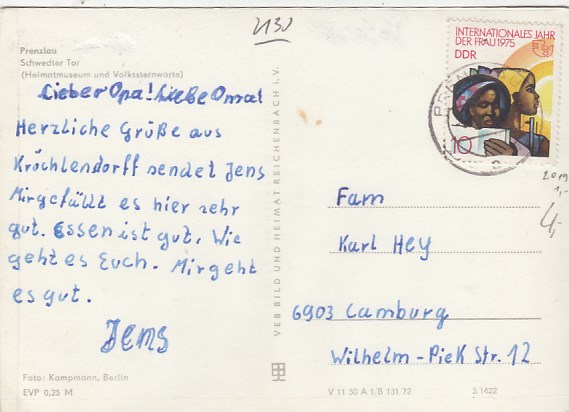 2130
Prenzlau
Schwedter Tor
(Heimatmuseum und Volkssternwarte)
Lieber Opa! Liebe Oma!
Herzliche Grüße aus
Kröchlendorff sendet Jens
Mir gefällt es hier sehr
gut. Essen ist gut. Wie
geht es Euch. Mir geht
es gut.
Jens
Foto: Kampmann, Berlin
EVP 0,25 M
VEB BILD UND HEIMAT REICHENBACH I. V.
INTERNATIONALES JAHR
DER FRAU 1975
DDR
10
2019
1,-
4,-
Fam
Karl Hey
6903 Camburg
Wilhelm-Piek Str. 12
V 11 50 A 1/B 131/72
3,1422